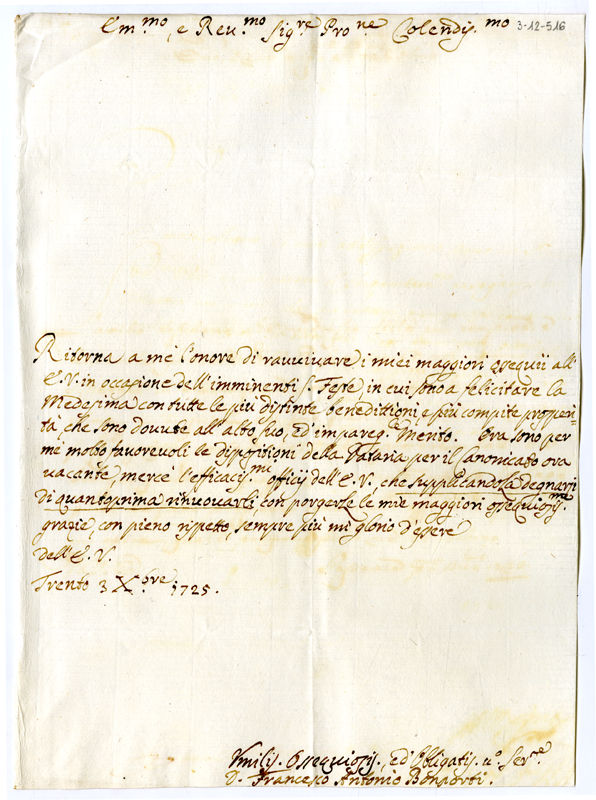 Em.mo, e Reu.mo Sig.re Pro.ne Colendis.mo 3-12-516
Ritorna a me l'onore di rauuiuare i miei maggiori ossequii all'
E.V. in occasione dell'imminenti S. Feste, in cui sono a felicitare la
Medesima con tutte le più distinte benedittioni, e più compite prosperi=
tà, che sono douute all'alto suo, ed'impareg.le Merito. Ora sono per
me molto fauoreuoli le dispositioni della Dataria per il Canonicato ora
uacante, mercè l'efficacis.mi officij dell'E.V. che supplicandola degnarsi
di quantoprima rinuouarli con porgerle le mie maggiori ossequiosis.me
grazie, con pieno rispetto, sempre più mi glorio d'essere
dell'E.V.
Trento 3 Xbre 1725.
Vmilis. Ossequiosis., ed'Obligatis. u.o Ser.re
D. Francesco Antonio Bonporti.